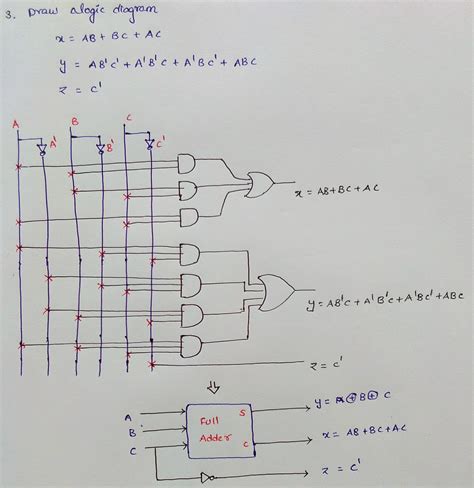 3. Draw a logic diagram
x = AB + BC + AC
y = AB'C' + A'B'C + A'BC' + ABC
z = C'
A B C
A' B' C'
x = AB + BC + AC
y = AB'C + A'B'C + A'BC' + ABC
z = C'
A
B
C
Full
Adder
S
C
y = A⊕B⊕C
x = AB + BC + AC
z = C'